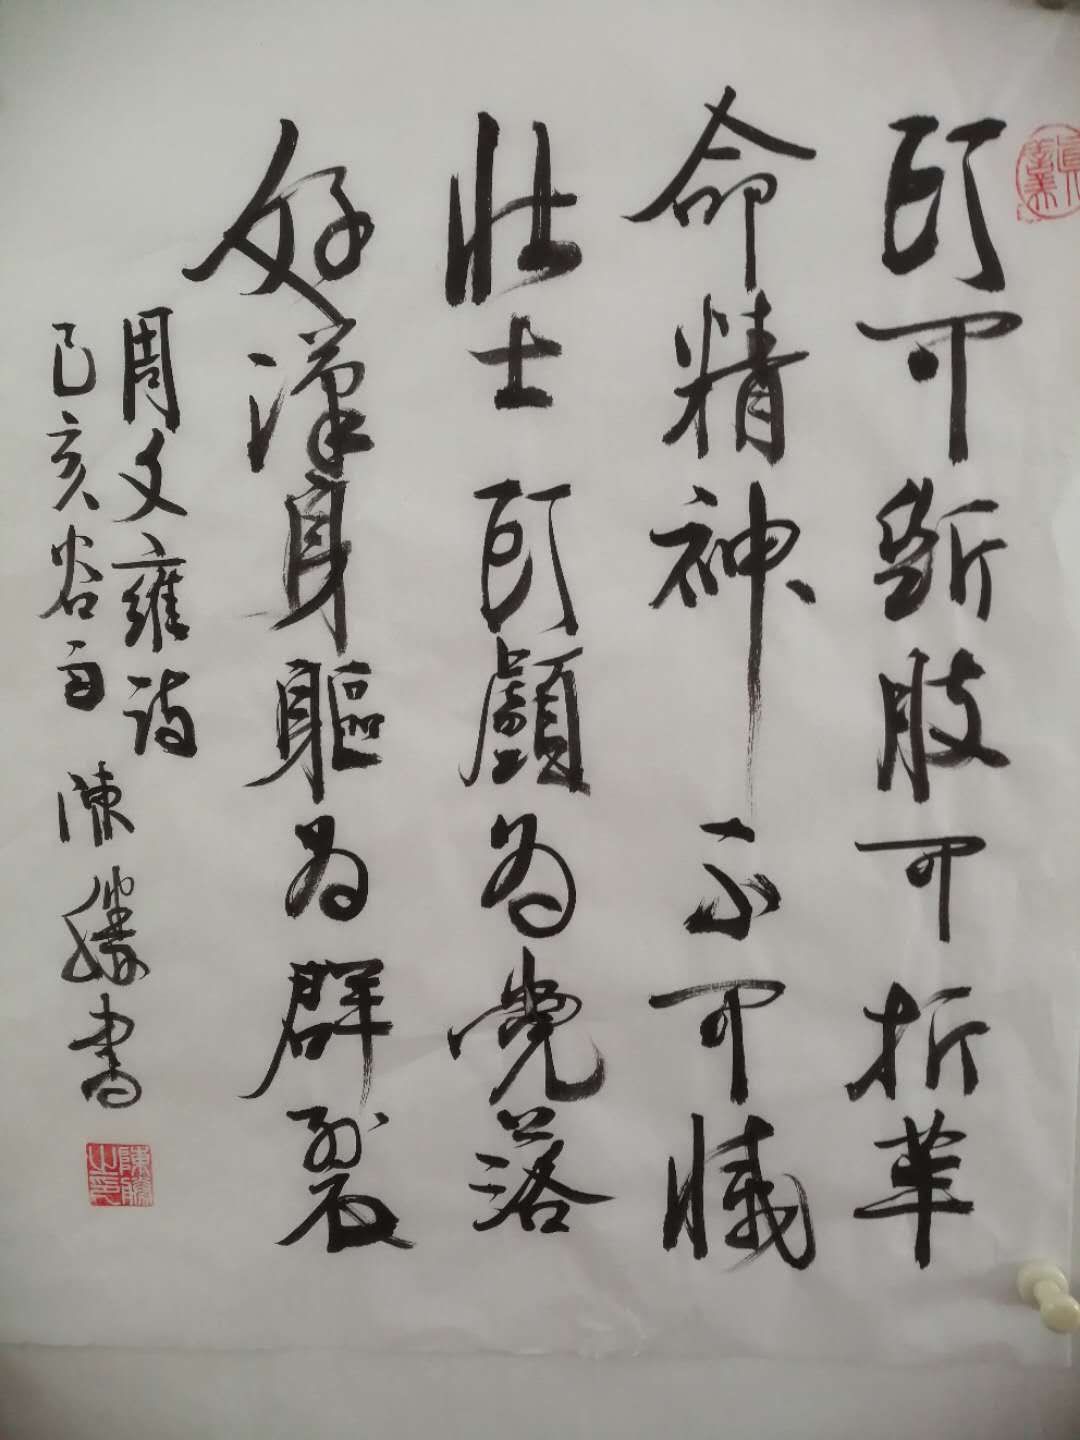 頭可斷肢可折革
命精神不可滅
壯士頭顱為黨落
好漢身軀為群裂
周文雍詩
己亥谷雨 陳勝書